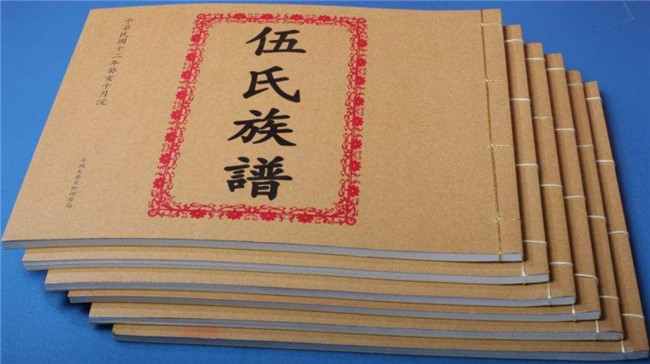 伍氏族譜
中華民國十二年癸亥十月浣